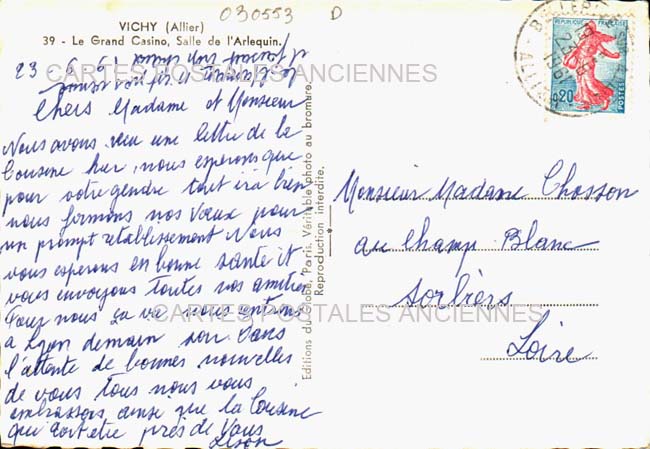 030553 D
VICHY (Allier)
39 - Le Grand Casino, Salle de l'Arlequin.
23
Chers Madame et Monsieur
Nous avons reçu une lettre de la
Cousine hier, nous esperons que
pour votre gendre tout ira bien
nous formons nos vœux pour
un prompt retablissement Nous
vous esperons en bonne santé et
vous envoyons toutes nos amitiés
Pour nous sa va nous entrons
a Lyon demain soir. Dans
l'attente de bonnes nouvelles
de vous tous nous vous
embrassons ainsi que la Cousine
qui doit etre près de Vous
Editions du Globe, Paris. Véritable photo au bromure.
Reproduction interdite.
REPUBLIQUE FRANÇAISE
0,20
POSTES
Monsieur Madame Chosson
au Champ Blanc
Sorbiers
Loire
CARTES POSTALES ANCIENNES
CARTES POSTALES ANCIENNES